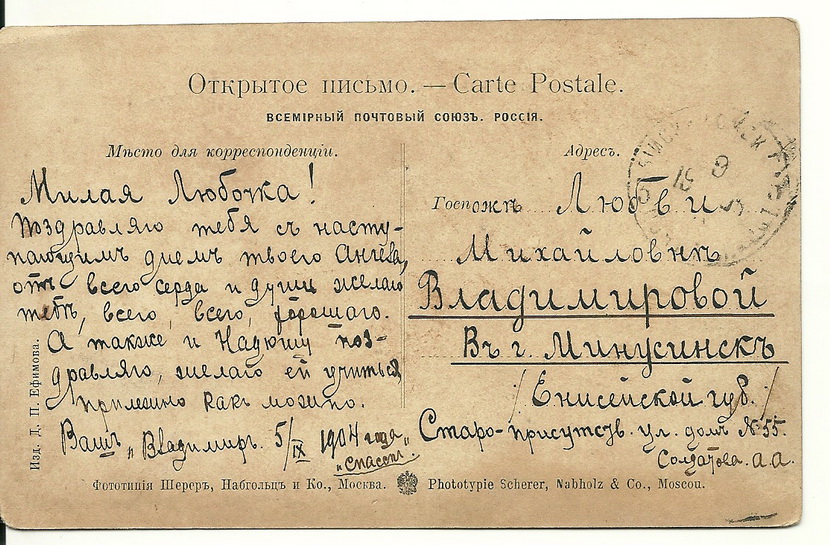 Открытое письмо. — Carte Postale.
ВСЕМІРНЫЙ ПОЧТОВЫЙ СОЮЗЪ. РОССІЯ.
Мѣсто для корреспонденціи.
Милая Любочка!
Поздравляю тебя съ насту-
пающимъ днемъ твоего Ангела,
отъ всего серда и души желаю
тебѣ, всего, всего, хорошаго.
А также и Надюшу поз-
дравляю, желаю ей учиться
прилежно какъ можно.
Вашъ „Владимиръ. 5/IX 1904 года
„Спасскъ.
Адресъ.
Госпожѣ Любви
Михайловнѣ
Владимировой
Въ г. Минусинскъ
/Енисейской губ./
Старо-присутств. ул. домъ № 55.
Солдатова. А. А.
Изд. Д. П. Ефимова.
Фототипія Шереръ, Набгольцъ и Ко., Москва. Phototypie Scherer, Nabholz & Co., Moscou.